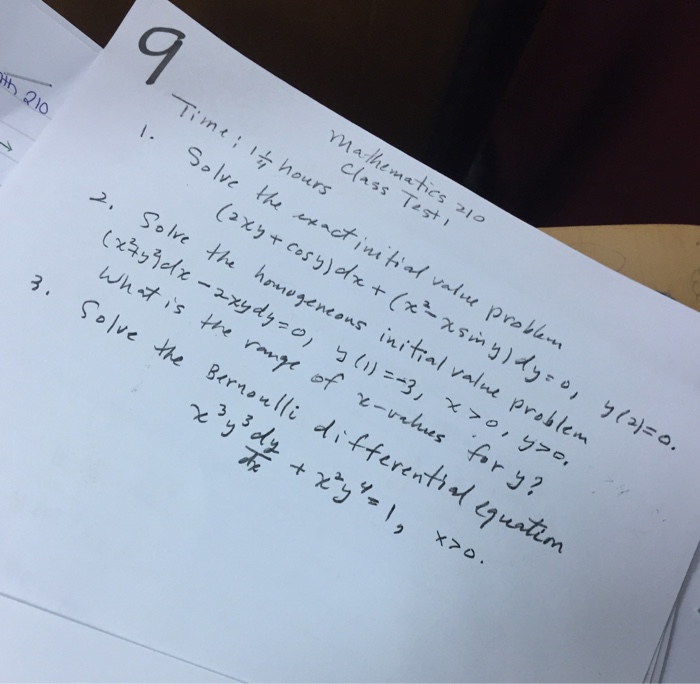 9
Mathematics 210
Class Test 1
Time: 1 1/4 hours
1. Solve the exact initial value problem
(2xy + cos y) dx + (x² - x sin y) dy = 0, y(2) = 0.
2. Solve the homogeneous initial value problem
(x² + y²) dx - 2xy dy = 0, y(1) = -3, x > 0, y > 0.
What is the range of x-values for y?
3. Solve the Bernoulli differential equation
x³y³ dy/dx + x²y⁴ = 1, x > 0.
210